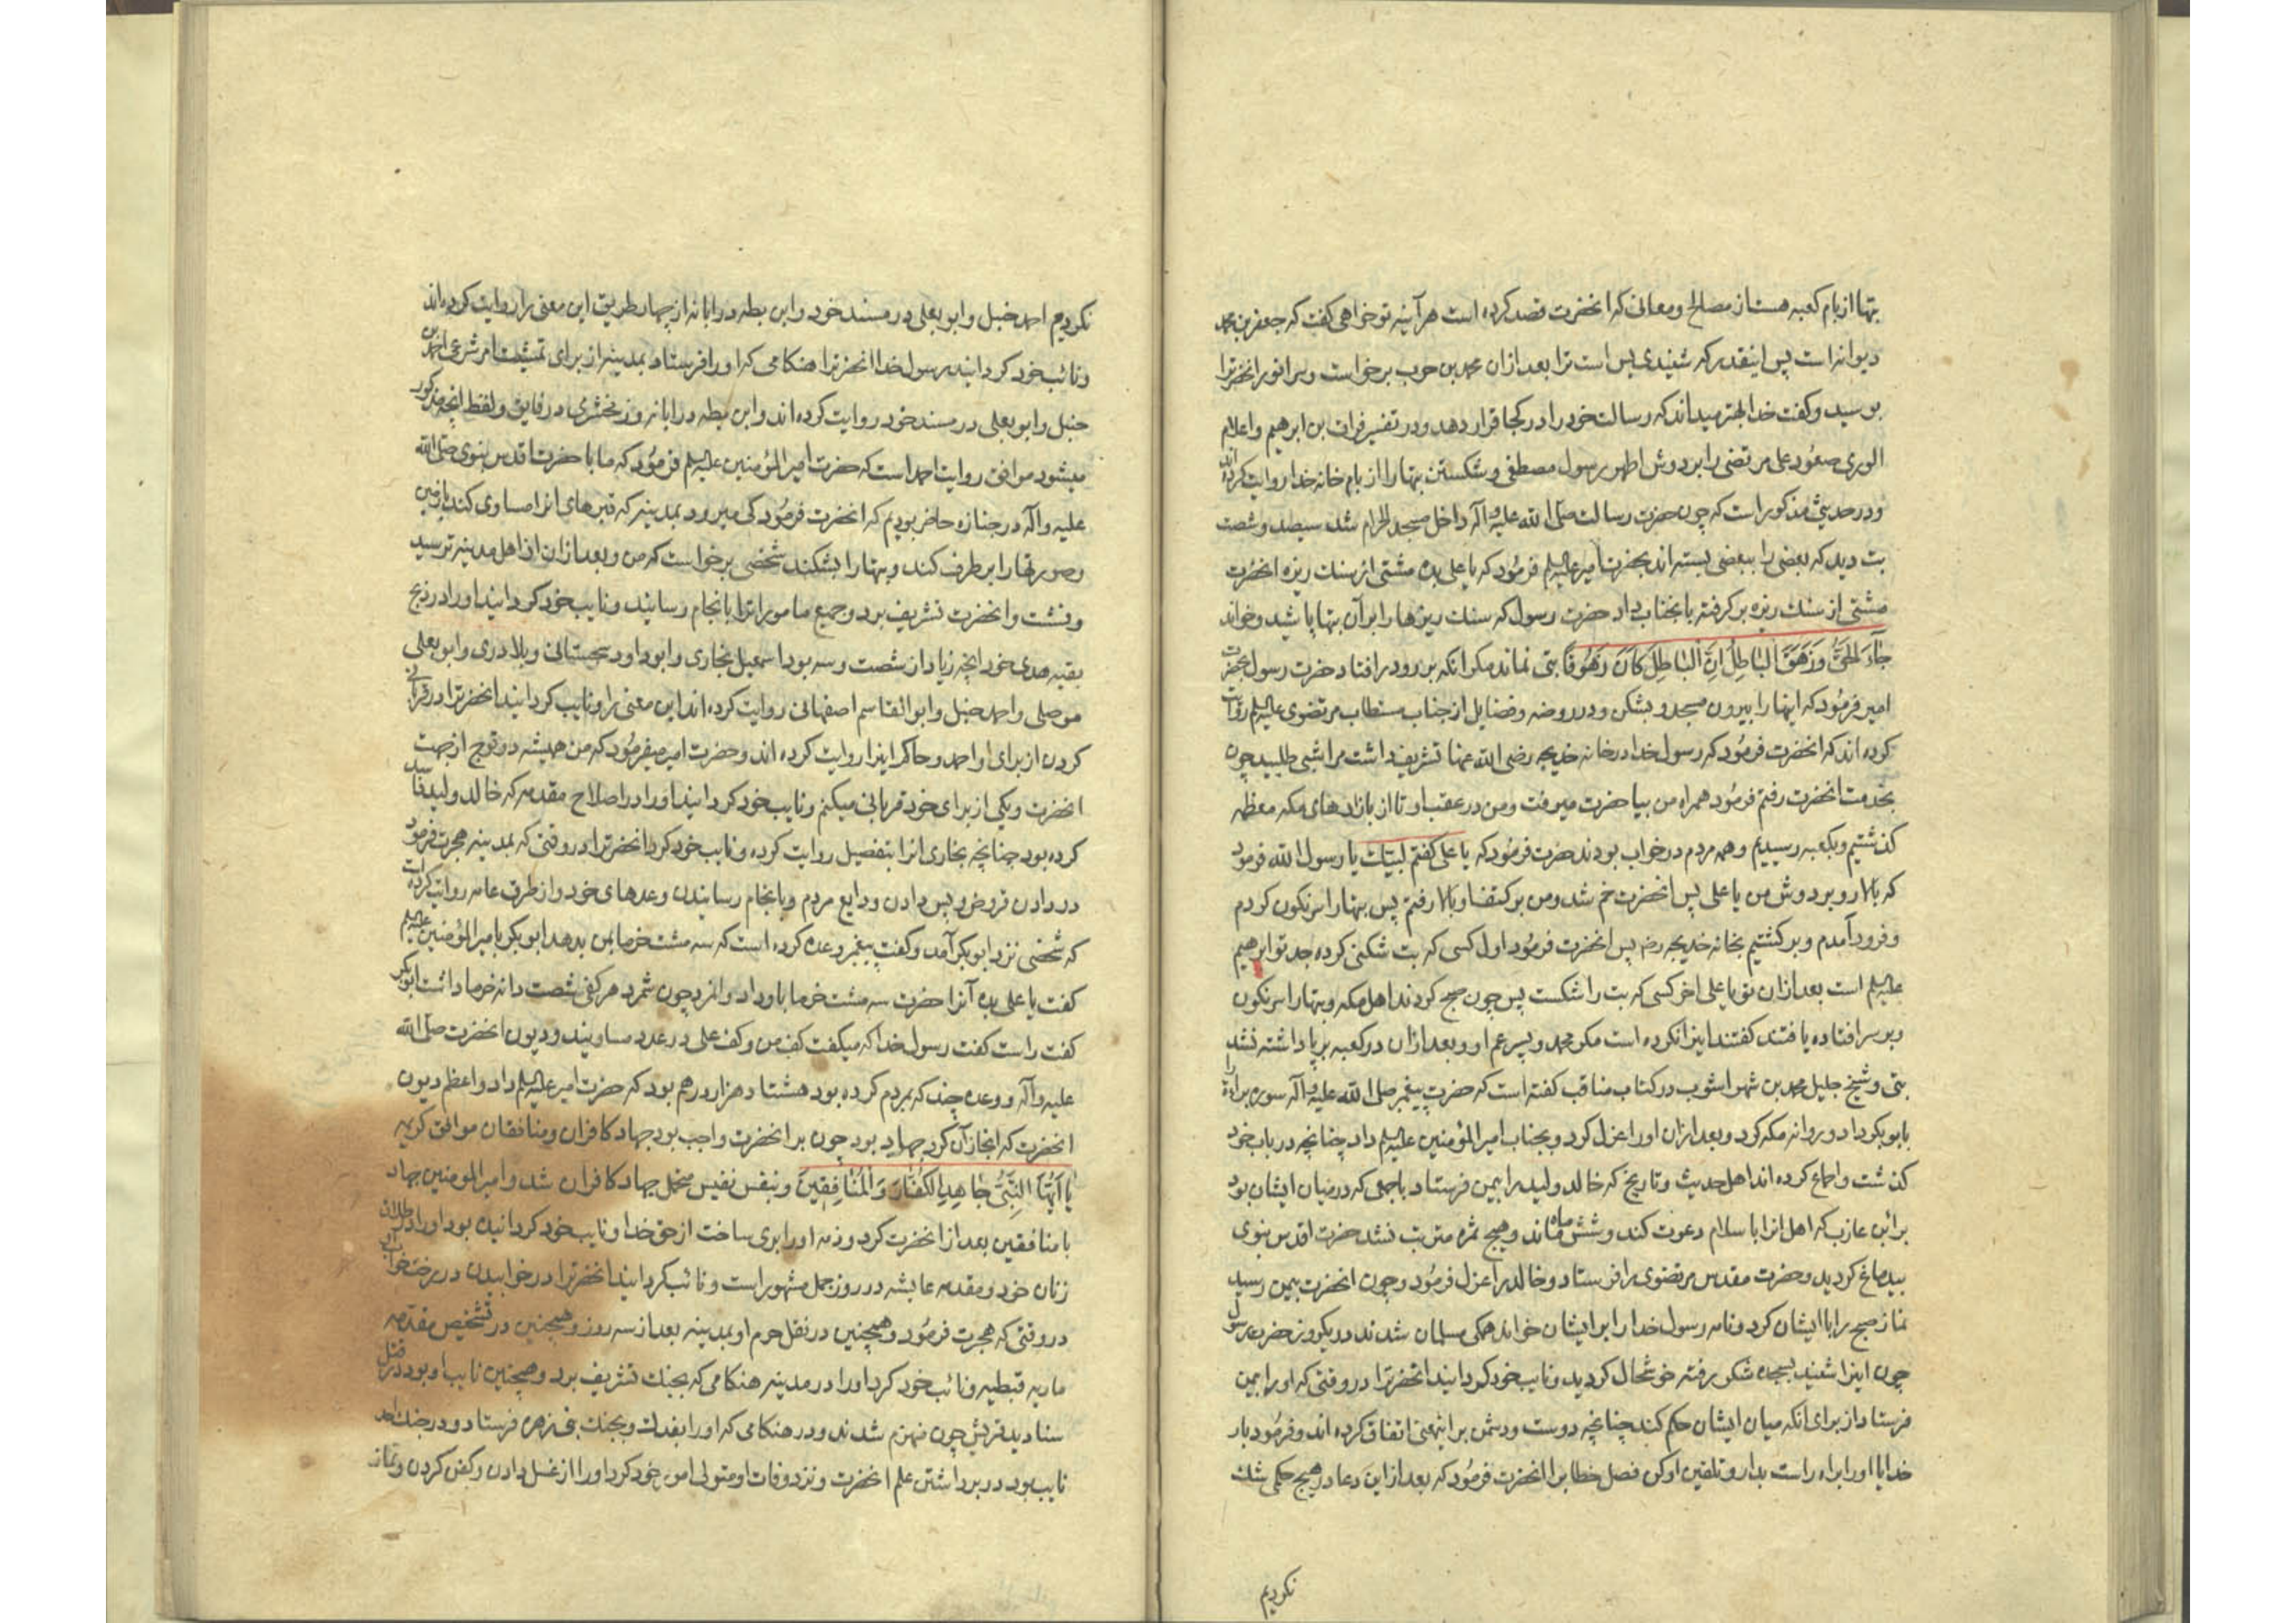 بتها از بام کعبه هست از مصالح و معانی که انحضرت قصد کرده است هر آینه تو خواهی کفت که جعفر بن محمد
دیوانه است پس اینقدر که شنیدی بس است ترا بعد ازان محمد بن حرب برخواست و سر انور انحضرترا
بوسید و کفت خدا بهتر میداند که رسالت خود را در کجا قرار دهد و در تفسیر فرات بن ابرهیم و اعلام
الوری صعُود علی مرتضی را بر دوش اطهر رسول مصطفی و شکستن بتها را از بام خانه خدا روایت کرده اند
و در حدیثی مذکور است که چون حضرت رسالت صلی الله علیه و آله داخل مسجد الحرام شد سیصد و شصت
بت دید که بعضی را ببعضی بسته اند بحضرت امیر علیه السلم فرمُود که یا علی بده مشتی از سنك ریزه انحضرت
مشتی از سنك ریزه برکرفته بانجناب داد حضرت رسول که سنك ریزها را بر آن بتها پاشید و خواند
جَآءَ الحَقُّ وَزَهَقَ البَاطِلُ اِنَّ البَاطِلَ کَانَ زَهُوقًا بتی نماند مکر انکه برو در افتاد حضرت رسول بحضرت
امیر فرمُود که انها را بیرون مسجد و بشکن و در روضه و فضایل از جناب مستطاب مرتضوی علیه السلم روایت
کرده اند که انحضرت فرمُود که رسول خدا در خانه خدیجه رضی الله عنها تشریف داشت مرا شبی طلبید چون
بخدمت انحضرت رفتم فرمُود همراه من بیا حضرت میرفت و من در عقب او تا از بازارهای مکه معظمه
کذشتیم و بکعبه رسیدیم و همه مردم در خواب بودند حضرت فرمُود که یا علی کفتم لبیك یا رسول الله فرمود
که بالا رو بر دوش من یا علی پس انحضرت خم شد و من بر کتف او بالا رفتم پس بتها را سرنکون کردم
و فرود آمدم و برکشتیم بخانه خدیجه رض پس انحضرت فرمُود اول کسی که بت شکنی کرده جد تو ابرهیم
علیه السلم است بعد ازان تو یا علی اخر کسی که بت را شکست پس چون صبح کردند اهل مکه و بتها را سرنکون
و بر سر افتاده یافتند کفتند اینرا نکرده است مکر محمد و پسر عم او و بعد ازان در کعبه برپا داشته نشد
بتی و شیخ جلیل محمد بن شهر اشوب در کتاب مناقب کفته است که حضرت پیغمبر صلی الله علیه و آله سوره براءة را
بابوبکر داد و روانه مکه کرد و بعد ازان او را عزل کرد و بجناب امیرالمؤمنین علیه السلم داد چنانچه در باب خود
کذشت و اجماع کرده اند اهل حدیث و تاریخ که خالد ولید را بیمن فرستاد با جمعی که در میان ایشان بود
براء بن عازب که اهل انرا باسلام دعوت کند و شش ماه ماند و هیچ ثمره مترتب نشد حضرت اقدس نبوی
بیدماغ کردید و حضرت مقدس مرتضوی را فرستاد و خالد را عزل فرمُود و چون انحضرت بیمن رسید
نماز صبح را با ایشان کرد و نامه رسول خدا را بر ایشان خواند همکی مسلمان شدند در یکروز حضرت رسول
چون اینرا شنید بسجده شکر رفته خوشحال کردید و نایب خود کردانید انحضرترا در وقتی که او را بیمن
فرستاد از برای انکه میان ایشان حکم کند چنانچه دوست و دشمن بر اینمعنی اتفاق کرده اند و فرمُود بار
خدایا او را براه راست بدار و تلقین او کن فصل خطا برا انحضرت فرمُود که بعد از این دعا در هیچ حکمی شك
نکردیم
نکردیم احمد حنبل و ابو یعلی در مسند خود و ابن بطه در ابانه از چهار طریق این معنی را روایت کرده اند
و نائب خود کردانید رسول خدا انحضرترا هنکامی که او را فرستاد بمدینه از برای تمشیت امر شرعی احمد بن
حنبل و ابو یعلی در مسند خود روایت کرده اند و ابن بطه در ابانه و زمخشری در فایق و لفظ انچه مذکور
میشود موافق روایت احمد است که حضرت امیر المؤمنین علیه السلم فرمُود که ما با حضرت اقدس نبوی صلی الله
علیه و آله در جنازه حاضر بودیم که انحضرت فرمُود کی میرود بمدینه که قبرهای انرا مساوی کند با زمین
و صورتها را بر طرف کند و بتها را بشکند شخصی برخواست که من و بعد ازان از اهل مدینه ترسید
و نشست و انحضرت تشریف برد و جمیع ما مور اترا بانجام رسانید و نایب خود کردانید او را در ذبح
بقیه هدی خود انچه زیاد از شصت و سه بود اسمعیل بخاری و ابو داود سجستانی و بلادری و ابو یعلی
موصلی و احمد حنبل و ابو القاسم اصفهانی روایت کرده اند این معنی را و نایب کردانید انحضرترا در قربانی
کردن از برای او احمد و حاکم اینرا روایت کرده اند و حضرت امیر میفرمُود که من همیشه دو قوچ از جهت
انحضرت و یکی از برای خود قربانی میکنم و نایب خود کردانید او را در اصلاح مقدمه که خالد ولید فاسد
کرده بود چنانچه بخاری انرا بتفصیل روایت کرده و نایب خود کرد انحضرترا در وقتی که بمدینه هجرت فرمود
در دادن قروض و پس دادن ودایع مردم و بانجام رسانیدن وعدهای خود و از طرق عامه روایت کرده است
که شخصی نزد ابوبکر آمد و کفت پیغمبر وعده کرده است که سه مشت خرما بمن بدهد ابوبکر بامیر المؤمنین علیه السلم
کفت یا علی بده آنرا حضرت سه مشت خرما باو داد و انمرد چون شمرد هر کفی شصت دانه خرما داشت ابوبکر
کفت راست کفت رسول خدا که میکفت کف من و کف علی در عدد مساویند و دیون انحضرت صلی الله
علیه و آله و وعده چند که بمردم کرده بود هشتاد هزار درهم بود که حضرت امیر علیه السلم داد و اعظم دیون
انحضرت که انجاز آن کرد جهاد بود چون بر انحضرت واجب بود جهاد کافران و منافقان موافق کریمه
یَا اَیُّهَا النَّبِیُّ جَاهِدِ الکُفَّارَ وَالمُنَافِقِینَ و بنفس نفیس متحمل جهاد کافران شد و امیر المؤمنین جهاد
با منافقین بعد از انحضرت کرد و ذمه او را بری ساخت از حق خدا و نایب خود کردانیده بود او را در طلاق
زنان خود و مقدمه عایشه در روز جمل مشهور است و نائب کردانید انحضرترا در خوابیدن در رخت خواب او
در وقتی که هجرت فرمُود و همچنین در نقل حرم او بمدینه بعد از سه روز و همچنین در تشخیص مقدمه
ماریه قبطیه و نائب خود کرد او را در مدینه هنکامی که بجنك تشریف برد و همچنین نایب او بود در قتل
سنادید قریش چون منهزم شدند و در هنکامی که او را بفدك و بجنك بنی زهره فرستاد و در جنك احد
نایب بود در برداشتن علم انحضرت و نزد وفات او متولی امور خود کرد او را از غسل دادن و کفن کردن و نماز